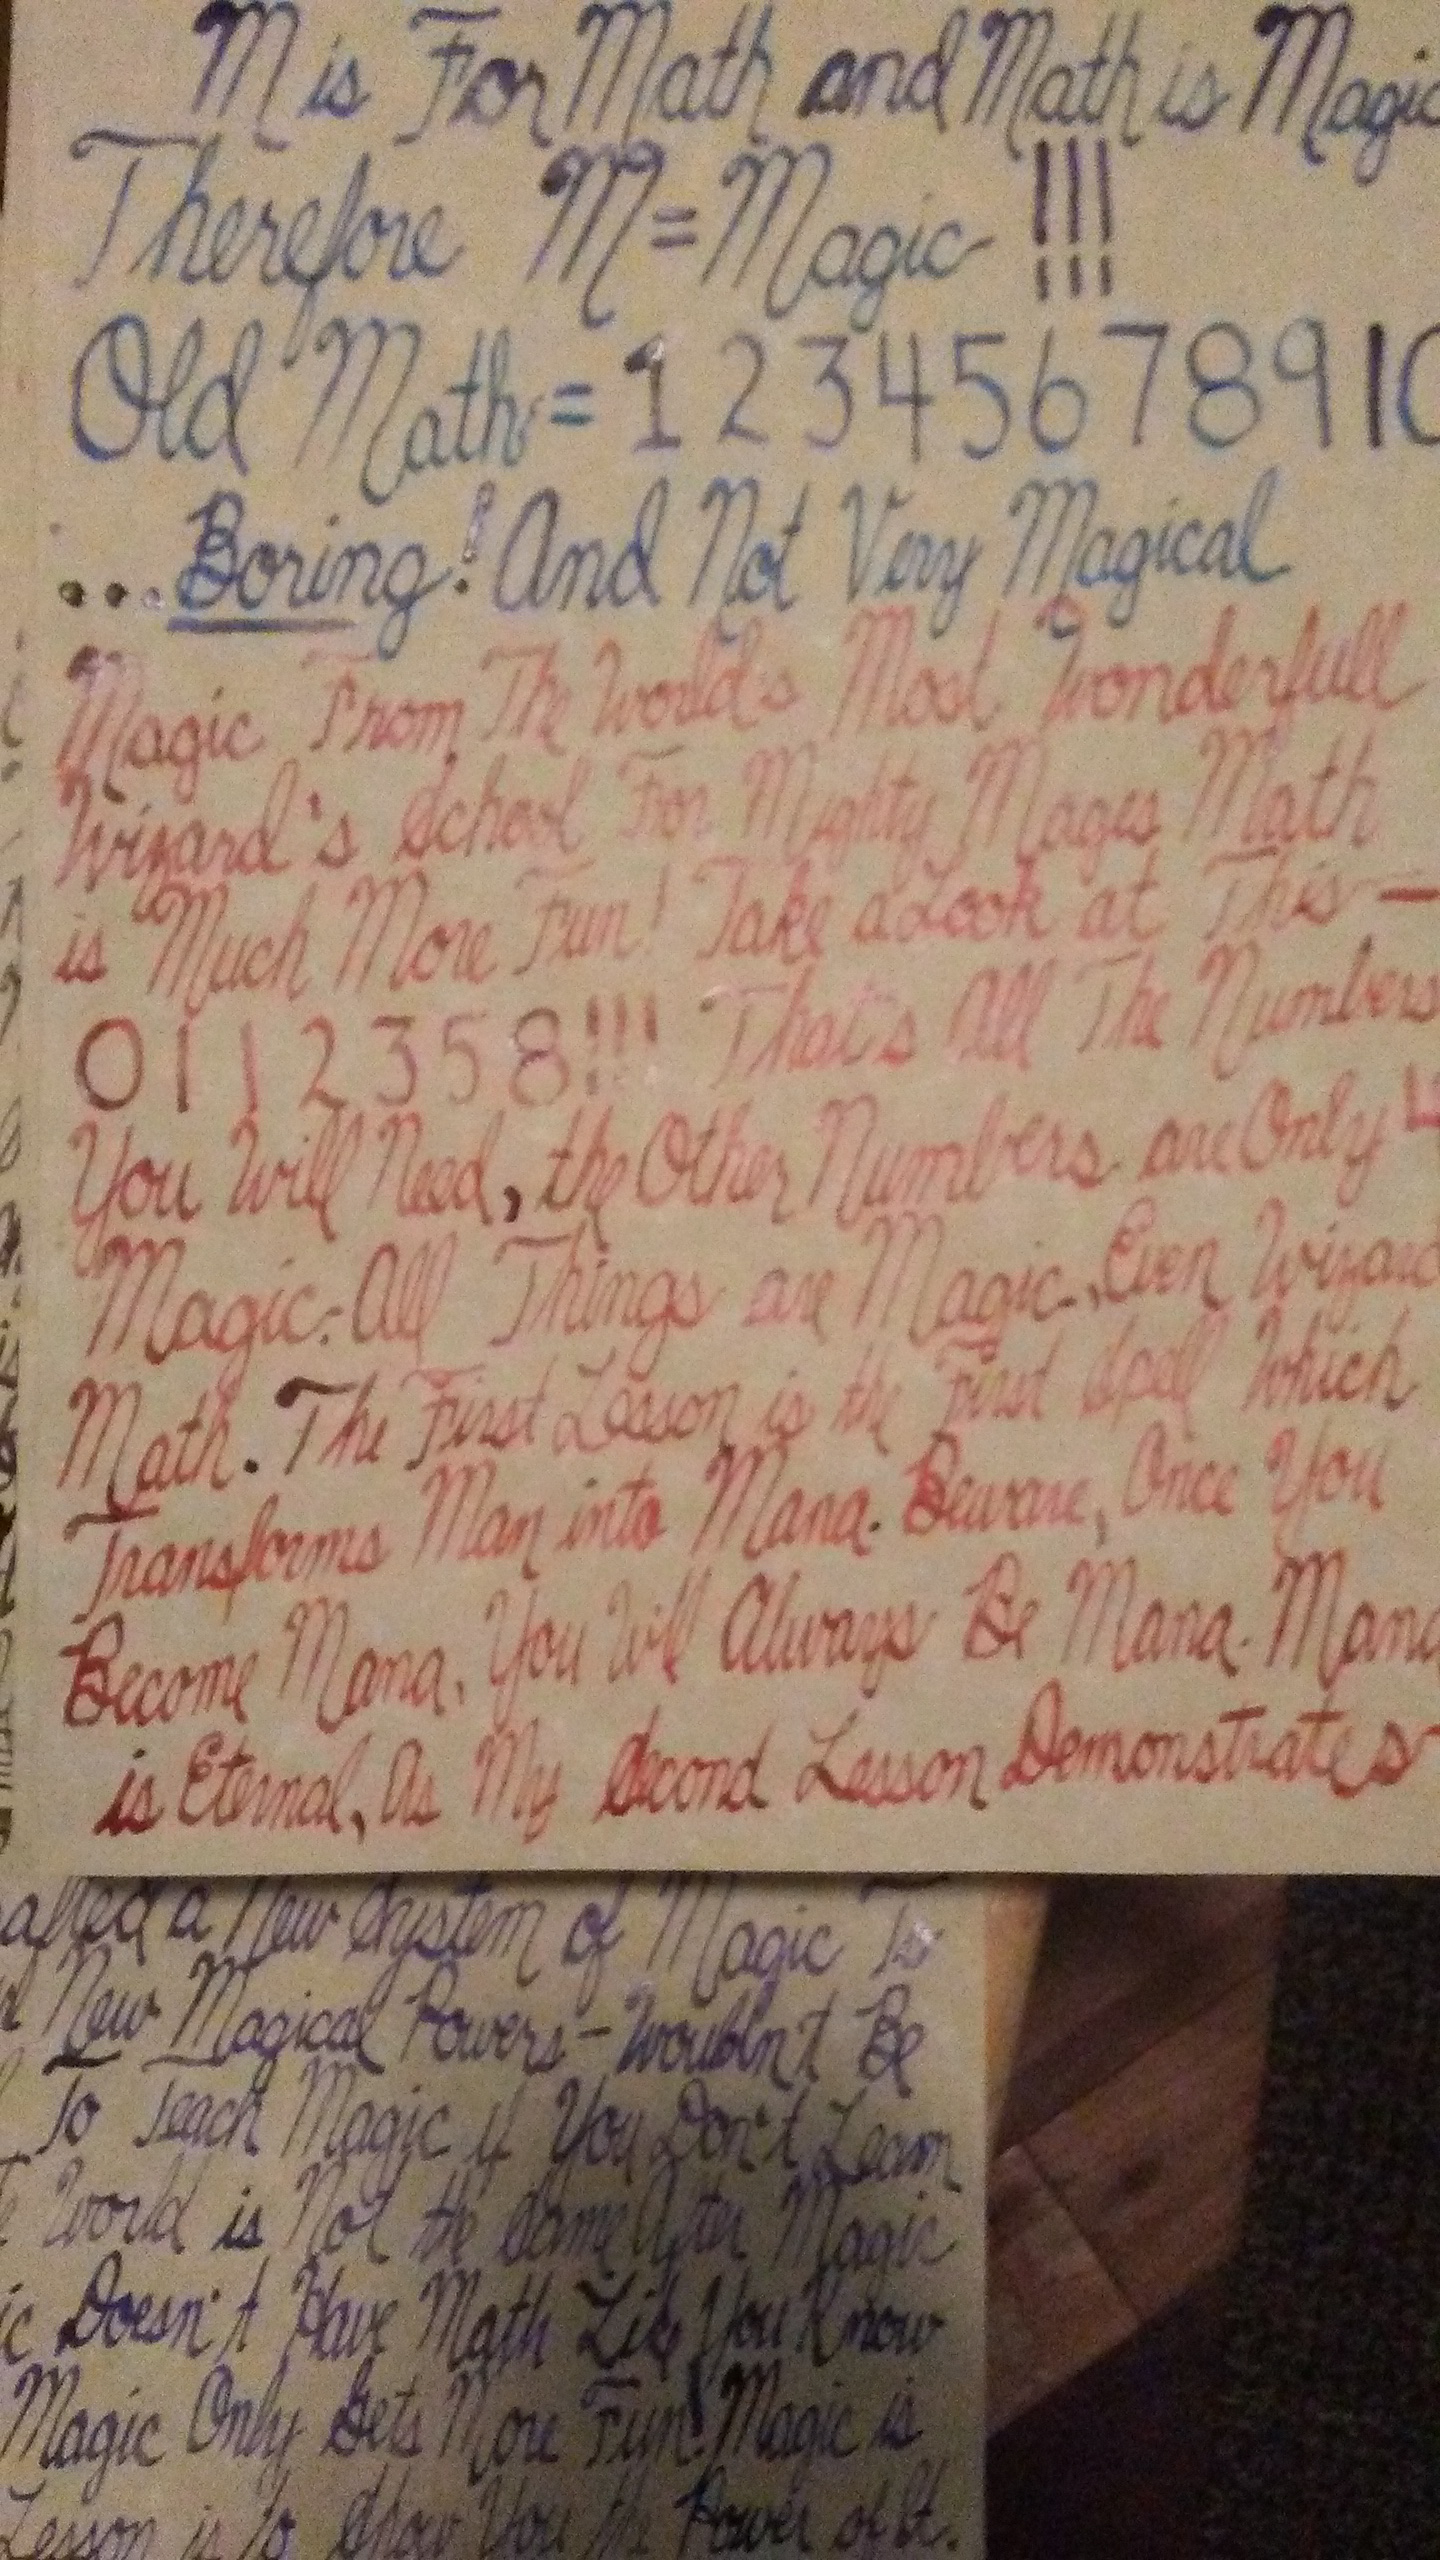 M is For Math and Math is Magic
Therefore M=Magic !!!
Old Math = 1 2 3 4 5 6 7 8 9 10
...Boring! And Not Very Magical
Magic From The World's Most Wonderfull
Wizard's School For Mighty Mages Math
is Much More Fun! Take a Look at This —
0 1 1 2 3 5 8!!! That's All The Numbers
You Will Need, the Other Numbers are Only
Magic. All Things are Magic, Even Wizard
Math. The First Lesson is the First Spell Which
Transforms Man into Mana. Beware, Once You
Become Mana, You Will Always Be Mana. Mana
is Eternal, As My Second Lesson Demonstrates
a New System of Magic To
New Magical Powers - Wouldn't Be
To Teach Magic if You Don't Learn
World is Not the Same After Magic
Doesn't Have Math Like You Know
Magic Only Gets More Fun! Magic is
Lesson is to Show You the Power of It.